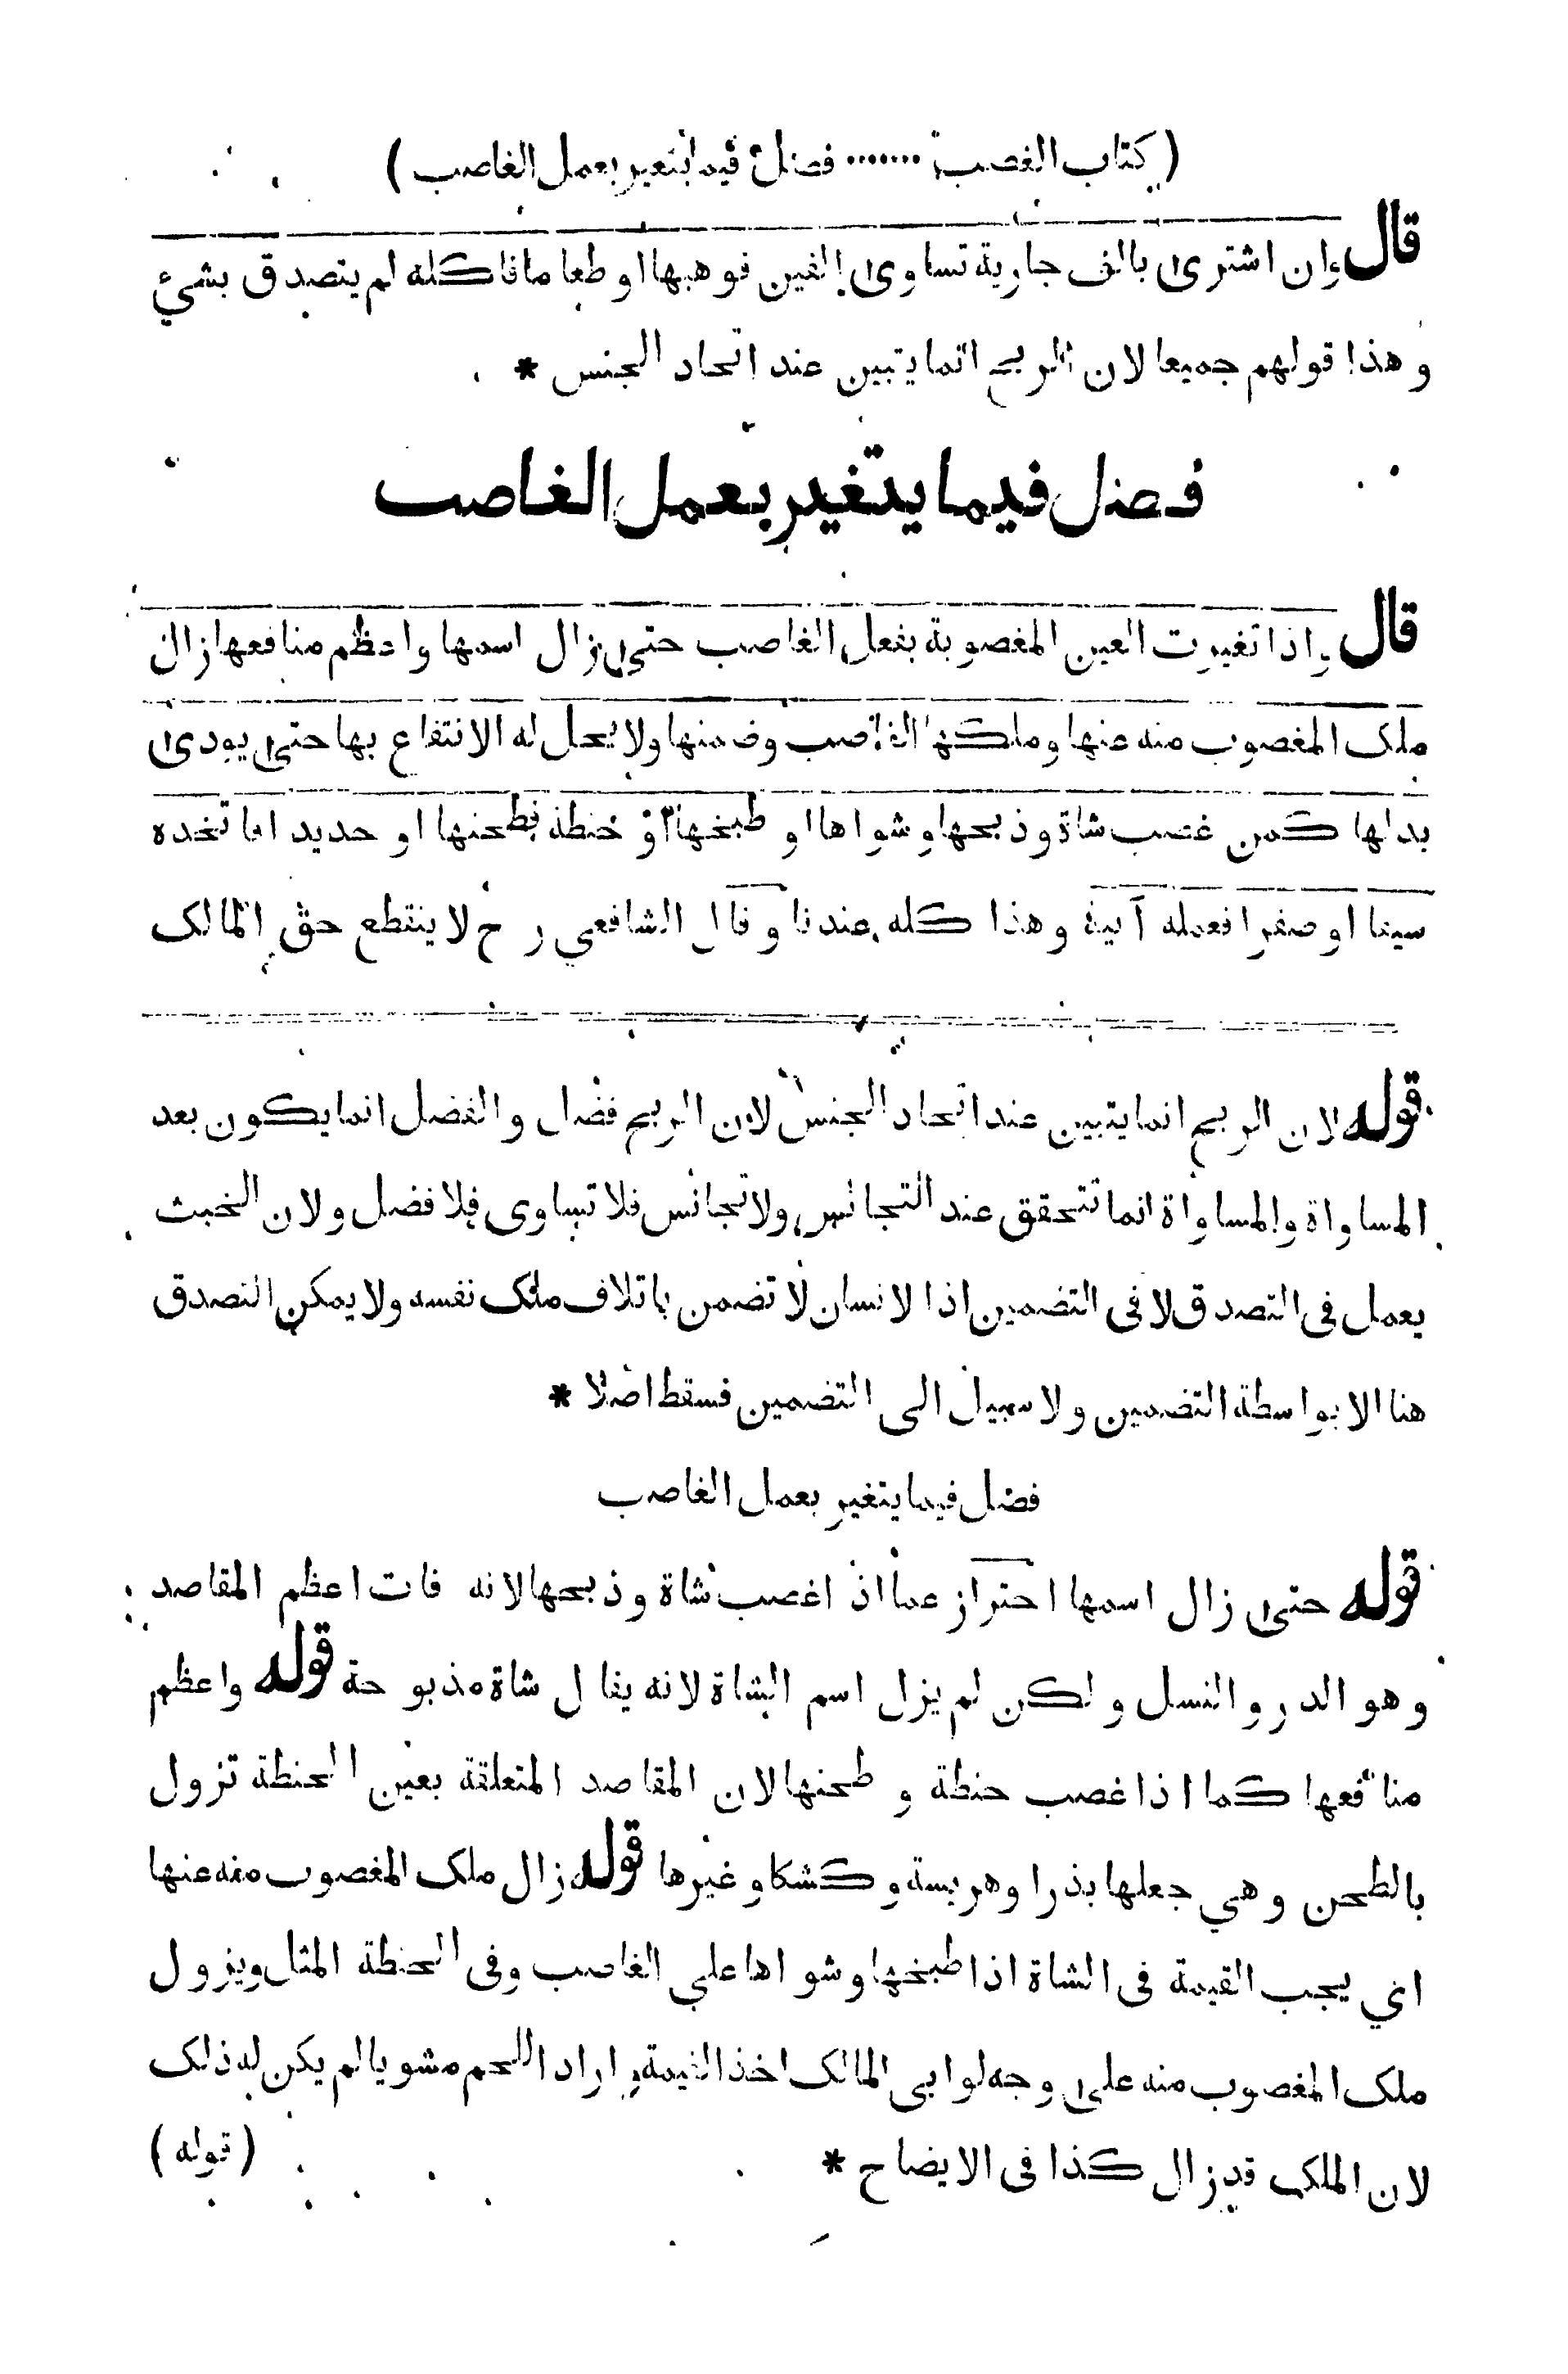 ( كتاب الغصب ······· فصل فيما يتغير بعمل الغاصب )
قال وان اشترى بالف جارية تساوى الفين فوهبها او طعاما فاكله لم يتصدق بشئ
و هذا قولهم جميعا لان الربح انما يتبين عند اتحاد الجنس *
فصل فيما يتغير بعمل الغاصب
قال واذا تغيرت العين المغصوبة بفعل الغاصب حتى زال اسمها واعظم منافعها زال
ملك المغصوب منه عنها وملكها الغاصب وضمنها ولا يحل له الانتفاع بها حتى يودى
بدلها كمن غصب شاة وذبحها وشواها او طبخها او حنطة فطحنها او حديدا فاتخذه
سيفا او صفرا فعمله آنية وهذا كله عندنا وقال الشافعي رح لا ينقطع حق المالك
قوله لان الربح انما يتبين عند اتحاد الجنس لان الربح فضل والفضل انما يكون بعد
المساواة والمساواة انما تتحقق عند التجانس ولا تجانس فلا تساوى فلا فضل ولان الخبث
يعمل فى التصدق لا فى التضمين اذا لانسان لا تضمن باتلاف ملك نفسه ولا يمكن التصدق
هنا الا بواسطة التضمين ولا سبيل الى التضمين فسقط اصلا *
فصل فيما يتغير بعمل الغاصب
قوله حتى زال اسمها احتراز عما اذ اغصب شاة وذبحها لانه فات اعظم المقاصد
وهو الدر والنسل ولكن لم يزل اسم الشاة لانه يقال شاة مذبوحة قوله واعظم
منافعها كما اذا غصب حنطة و طحنها لان المقاصد المتعلقة بعين الحنطة تزول
بالطحن وهي جعلها بذرا وهريسة وكشكا وغيرها قوله زال ملك المغصوب منه عنها
اي يجب القيمة فى الشاة اذا طبخها وشواها علي الغاصب وفى الحنطة المثل ويزول
ملك المغصوب منه على وجه لو ابى المالك اخذ القيمة واراد اللحم مشويا لم يكن له ذلك
لان الملك قد زال كذا فى الايضاح *
( قوله )